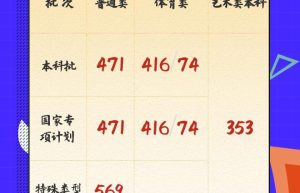 批次 普通类 体育类 艺术类本科
本科批 471 416/74
国家专 471 416/74 353
项计划
特殊类型 569